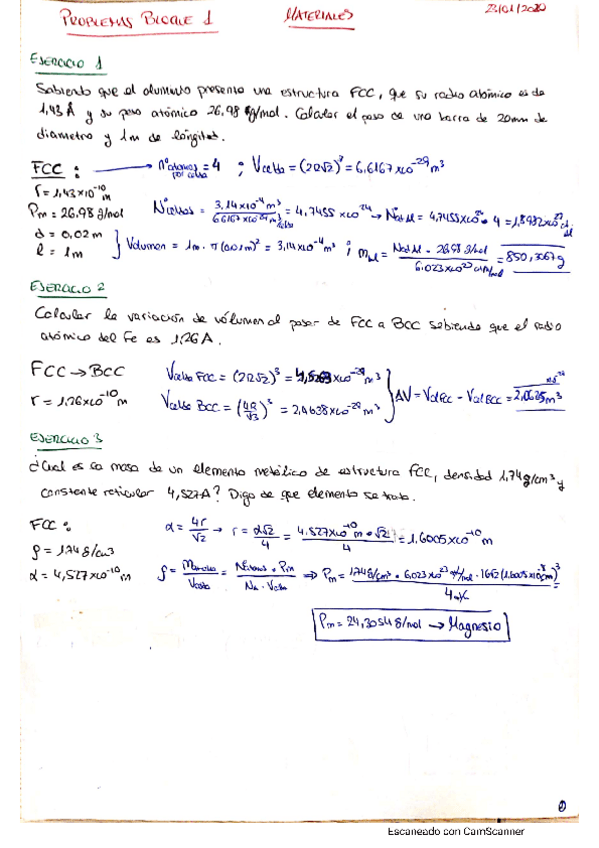 PROBLEMAS BLOQUE 1 MATERIALES 23/01/2020
EJERCICIO 1
Sabiendo que el aluminio presenta una estructura FCC, que su radio atómico es de
1,43 Å y su peso atómico 26.98 g/mol. Calcular el peso de una barra de 20mm de
diametro y 1m de longitud.
FCC : → nº átomos por celda = 4 ; Vcelda = (2R√2)³ = 6,6167x10⁻²⁹ m³
r = 1,43x10⁻¹⁰ m
Pm = 26.98 g/mol
d = 0,02 m
l = 1m
Nºceldas = 3,14x10⁻⁴ m³ / 6.6167x10⁻²⁹ m³/celda = 4,7455x10²⁴ → Nat Al = 4,7455x10²⁴ · 4 = 1,8982x10²⁵ at Al
Volumen = 1m · π(0,01m)² = 3,14x10⁻⁴ m³ ; mAl = Nat Al · 26.98 g/mol / 6.023x10²³ at/mol = 850,3067 g
EJERCICIO 2
Calcular la variación de vólumen al pasar de FCC a BCC sabiendo que el radio
atómico del Fe es 1,26 A.
FCC → BCC
r = 1,26x10⁻¹⁰ m
Vcelda FCC = (2R√2)³ = 4,5263x10⁻²⁹ m³
Vcelda BCC = (4R/√3)³ = 2,4638x10⁻²⁹ m³
ΔV = Vcel FCC - Vcel BCC = 2,0625 m³
EJERCICIO 3
¿Cual es la masa de un elemento metálico de estructura FCC, densidad 1,74 g/cm³ y
constante reticular 4,527A? Diga de que elemento se trata.
FCC :
ρ = 1.74 g/cm3
a = 4,527x10⁻¹⁰ m
a = 4r/√2 → r = a√2/4 = 4.527x10⁻¹⁰ m · √2 / 4 = 1,6005x10⁻¹⁰ m
ρ = / Vcelda = · Pm / NA · Vcelda ⇒ Pm = 1,74 g/cm³ · 6,023x10²³ at/mol · 16√2 (1.6005x10⁻⁸ cm)³ / 4 at
Pm = 24,3054 g/mol → Magnesio
Escaneado con CamScanner